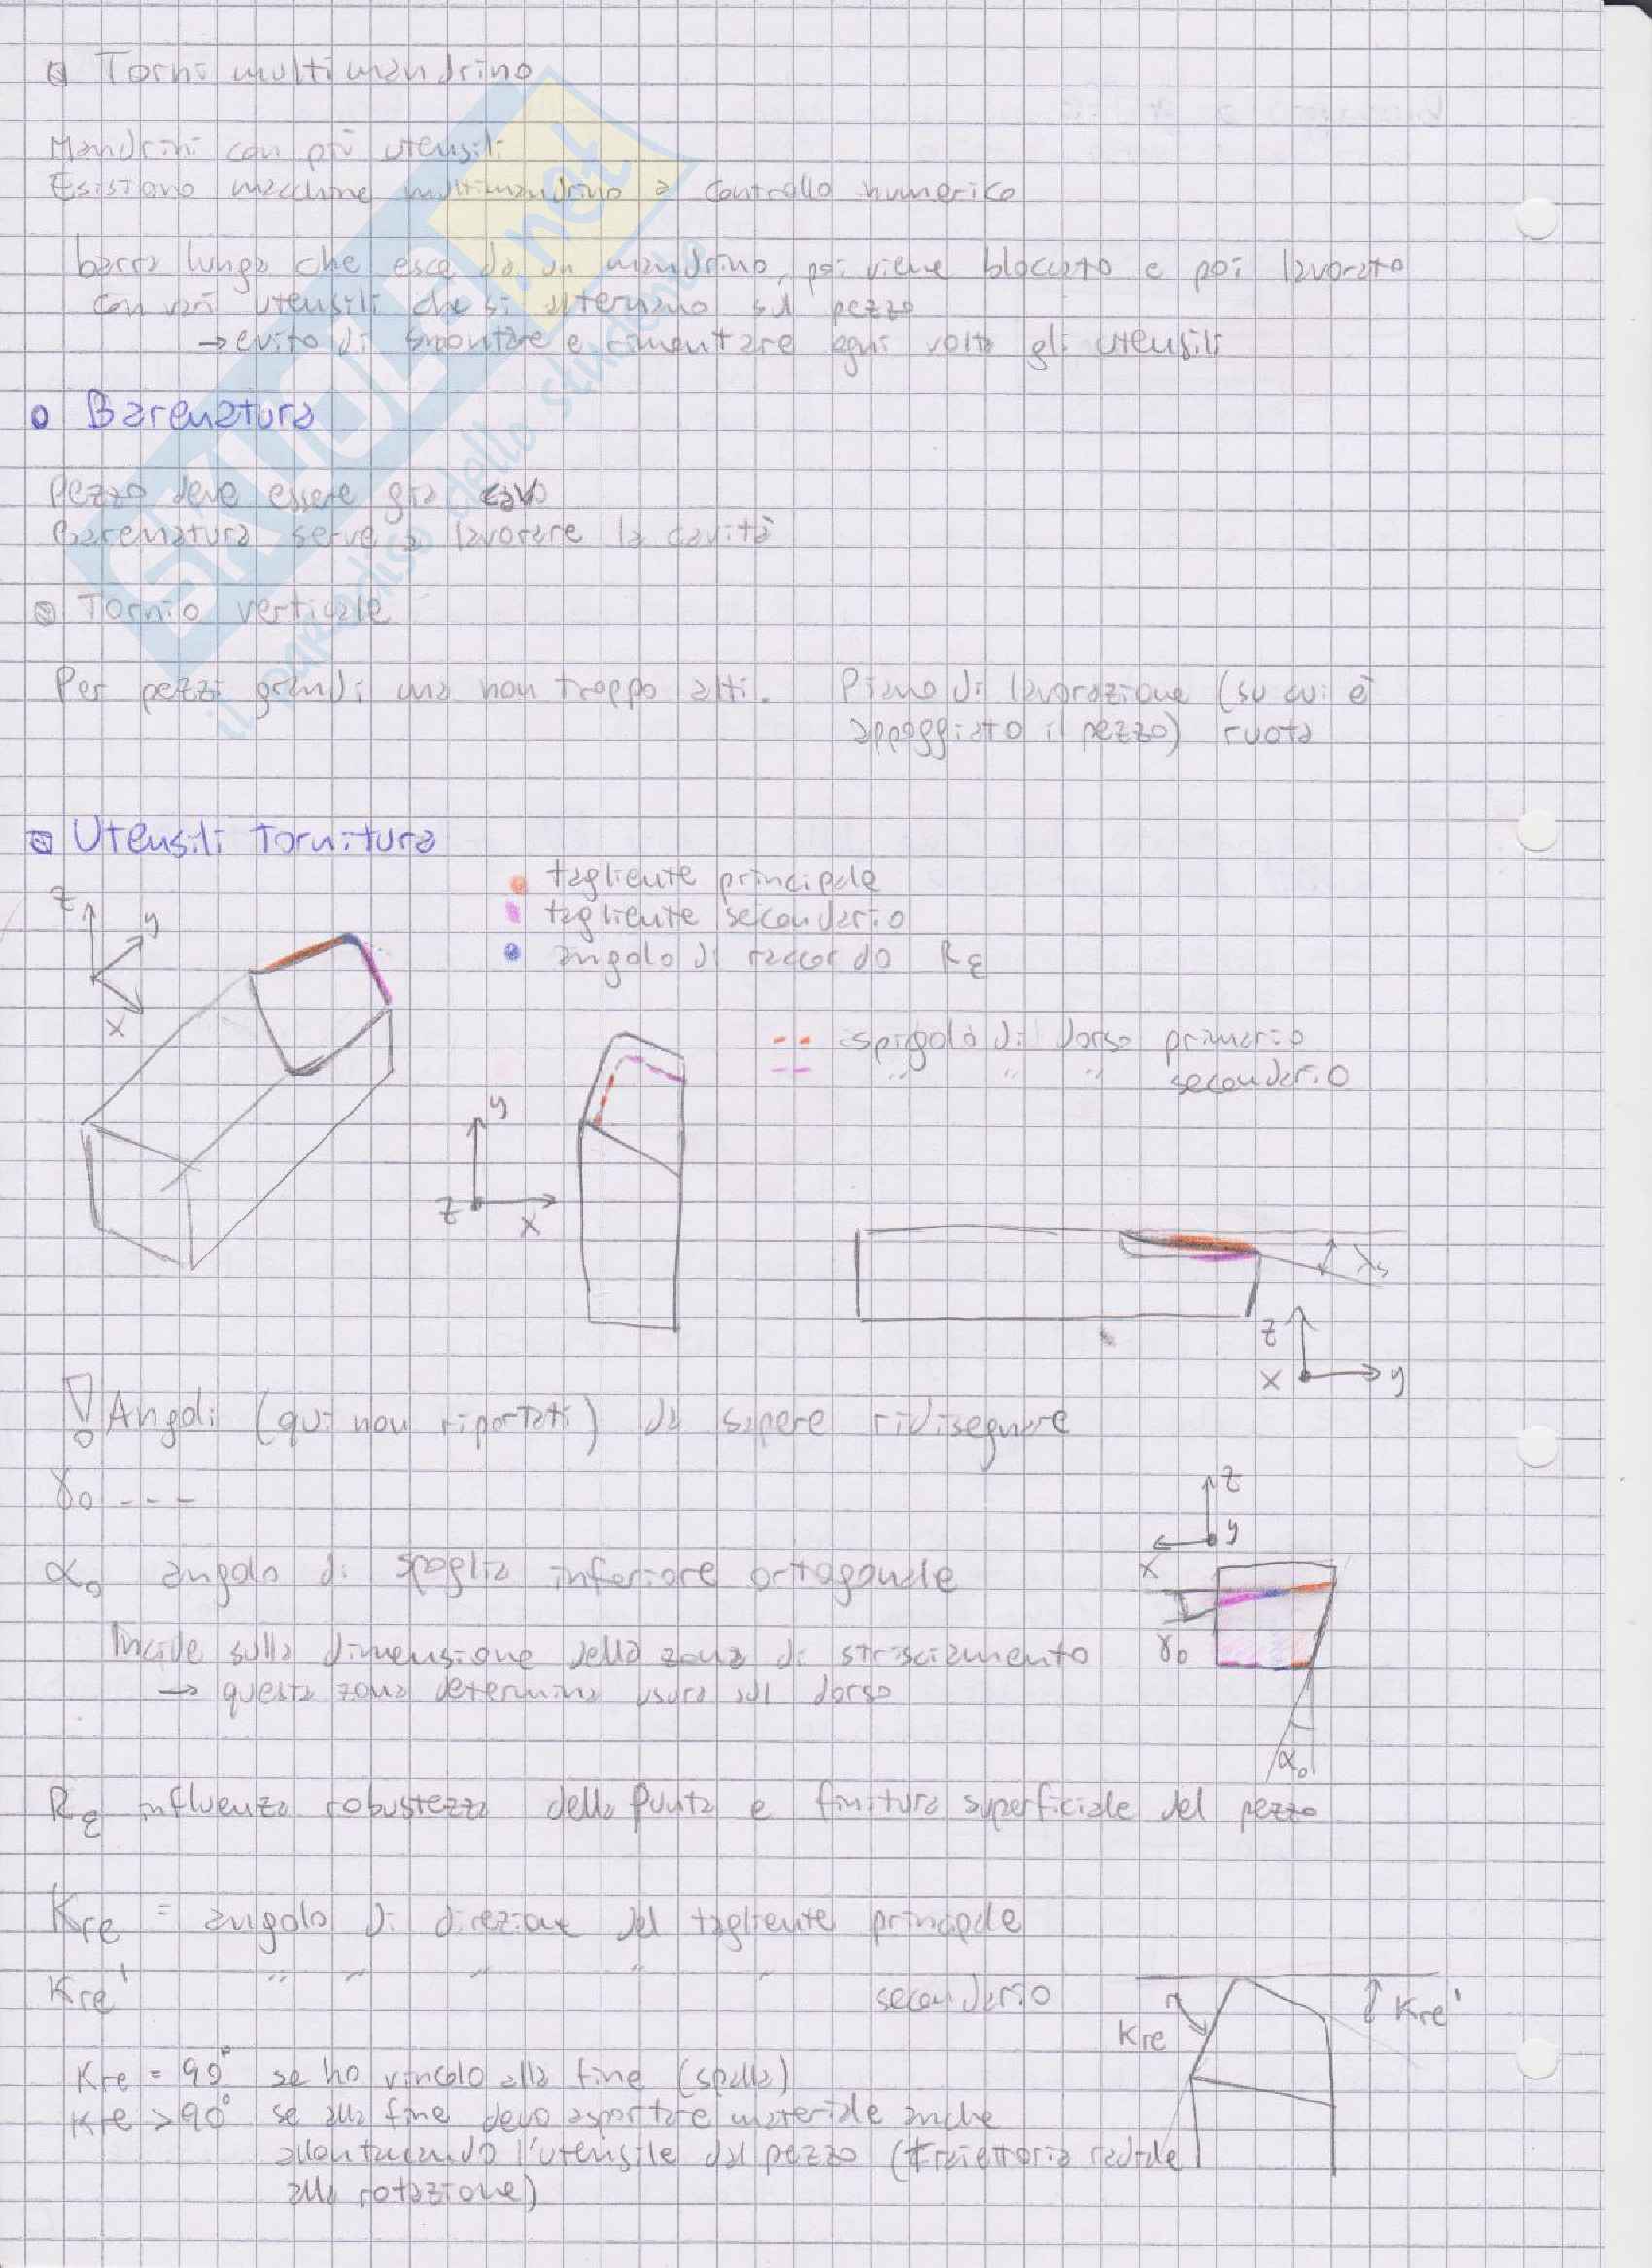 Torni multimandrino
Mandrini con più utensili
Esistono macchine multimandrino a controllo numerico
barra lunga che esce da un mandrino, poi viene bloccato e poi lavorato
con vari utensili che si alternano sul pezzo
→ evito di smontare e rimontare ogni volta gli utensili
Barenatura
Pezzo deve essere già cavo
Barenatura serve a lavorare la cavità
Tornio verticale
Per pezzi grandi ma non troppo alti. Piano di lavorazione (su cui è
appoggiato il pezzo) ruota
Utensili tornitura
tagliente principale
tagliente secondario
angolo di raccordo Rε
z
y
x
-- spigolo di dorso primario
-- " " " secondario
y
z
x
λs
z
x
y
! Angoli (qui non riportati) da sapere ridisegnare
γ0 ---
z
y
x
α0 angolo di spoglia inferiore ortogonale
Incide sulla dimensione della zona di strisciamento
→ questa zona determina usura sul dorso
γ0
α0
Rε influenza robustezza della punta e finitura superficiale del pezzo
Kre = angolo di direzione del tagliente principale
Kre' " " " " " secondario
Kre
Kre'
Kre = 90° se ho vincolo alla fine (spalla)
Kre > 90° se alla fine devo asportare materiale anche
allontanando l'utensile dal pezzo (traiettoria radiale
alla rotazione)
SKUOLA.net
il paradiso dello studente